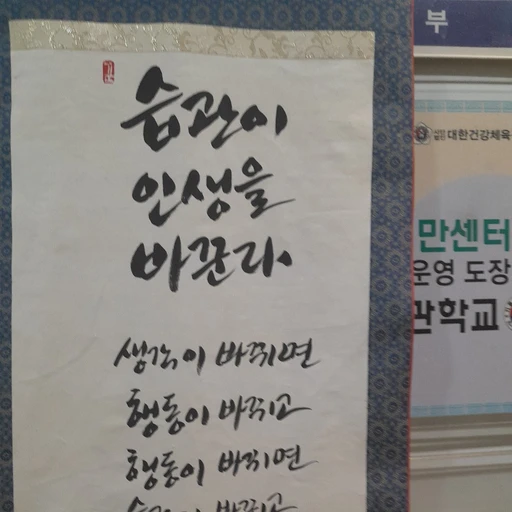 습관이
인생을
바꾼다.
생각이 바뀌면
행동이 바뀌고
행동이 바뀌면
습관이 바뀌고
부
대한건강체육
만센터
운영 도장
관학교